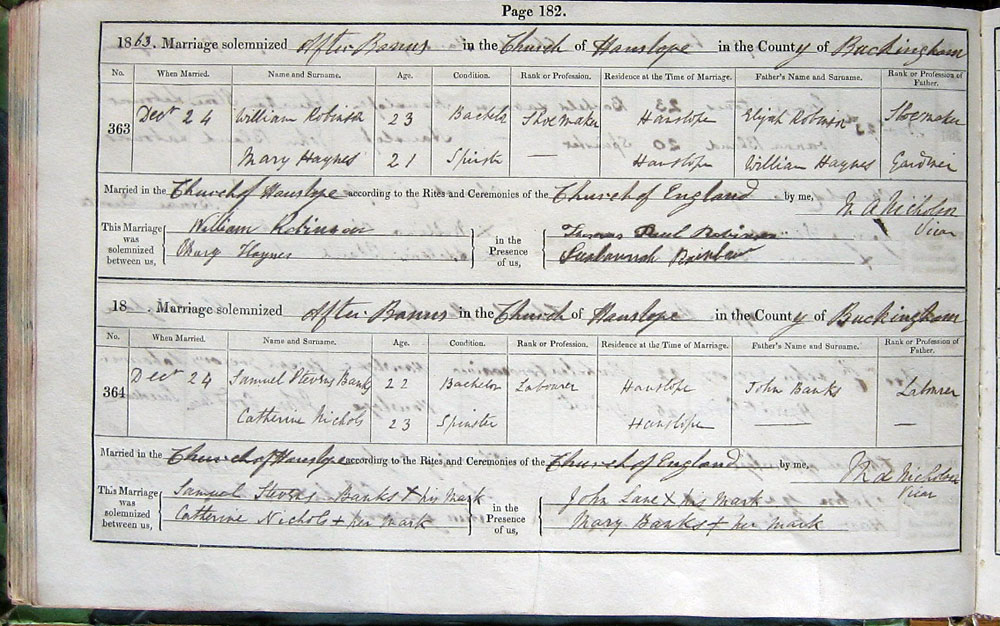 Page 182.
1863. Marriage solemnized After Banns in the Church of Hanslope in the County of Buckingham
No. When Married. Name and Surname. Age. Condition. Rank or Profession. Residence at the Time of Marriage. Father's Name and Surname. Rank or Profession of Father.
363 Decr 24 William Robinson 23 Bachelr Shoemaker Hanslope Elijah Robinson Shoemaker
Mary Haynes 21 Spinstr — Hanslope William Haynes Gardner
Married in the Church of Hanslope according to the Rites and Ceremonies of the Church of England by me, M A Nicholson
Vicar
This Marriage was solemnized between us, William Robinson
Mary Haynes
in the Presence of us, Thomas Paul Robinson
Susannah Rainbow
18 . Marriage solemnized After Banns in the Church of Hanslope in the County of Buckingham
No. When Married. Name and Surname. Age. Condition. Rank or Profession. Residence at the Time of Marriage. Father's Name and Surname. Rank or Profession of Father.
364 Decr 24 Samuel Stevens Banks 22 Bachelor Labourer Hanslope John Banks Labourer
Catherine Nichols 23 Spinster Hanslope — —
Married in the Church of Hanslope according to the Rites and Ceremonies of the Church of England by me, M A Nicholson
Vicar
This Marriage was solemnized between us, Samuel Stevens Banks + his mark
Catherine Nichols + her mark
in the Presence of us, John Lane + his mark
Mary Banks + her mark